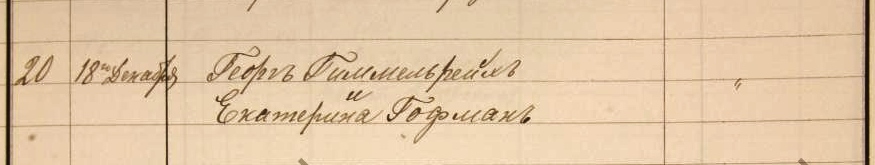 20 18го Декабря Георгъ Гиммельрейхъ
и
Екатерина Гофманъ "